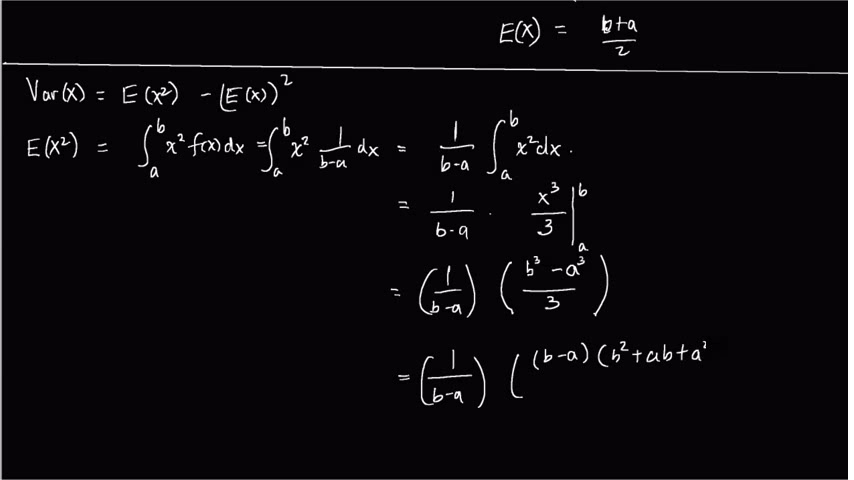 E(X) = \frac{b+a}{2}
Var(X) = E(X²) - (E(X))²
E(X²) = \int_a^b x² f(x) dx = \int_a^b x² \frac{1}{b-a} dx = \frac{1}{b-a} \int_a^b x² dx.
= \frac{1}{b-a} \cdot \frac{x³}{3} |_a^b
= (\frac{1}{b-a}) (\frac{b³ - a³}{3})
= (\frac{1}{b-a}) ( (b-a) (b² + ab + a²